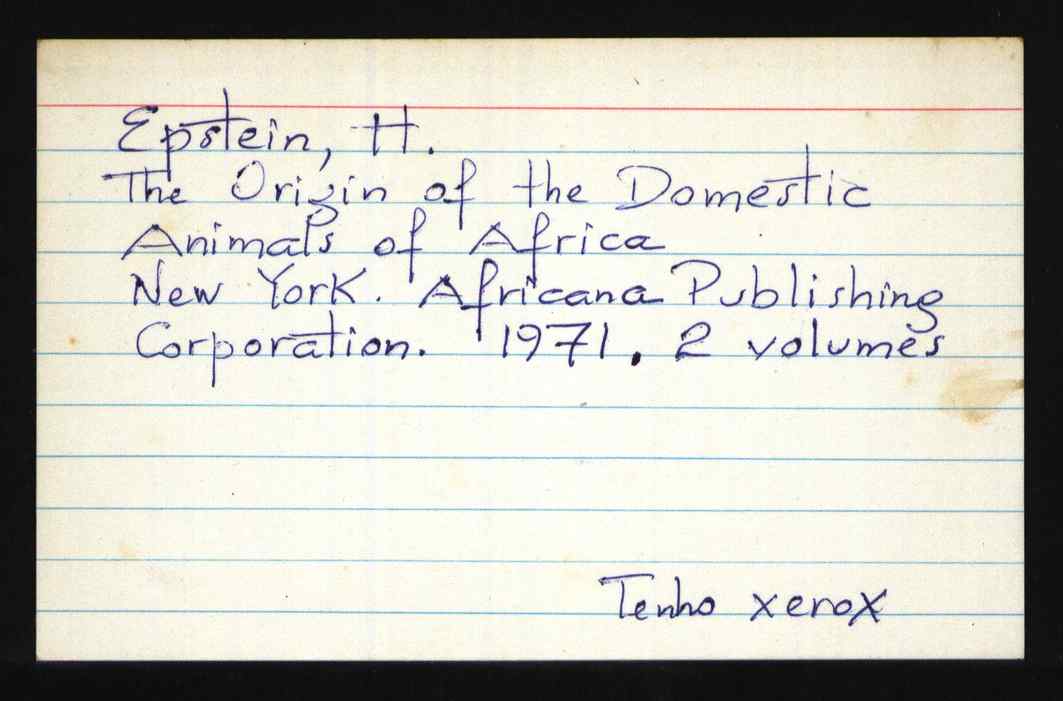 Epstein, H.
The Origin of the Domestic
Animals of Africa
New York. Africana Publishing
Corporation. 1971. 2 volumes
Tenho xerox